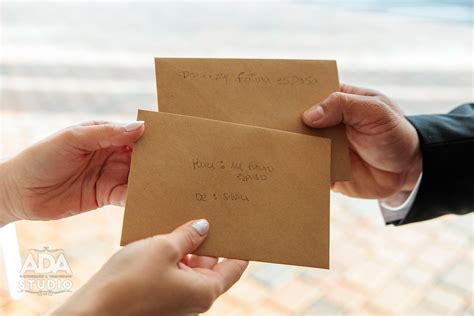 Para: mi futura esposa
Para: Mi futuro
esposo
De: Silvia
ADA
STUDIO